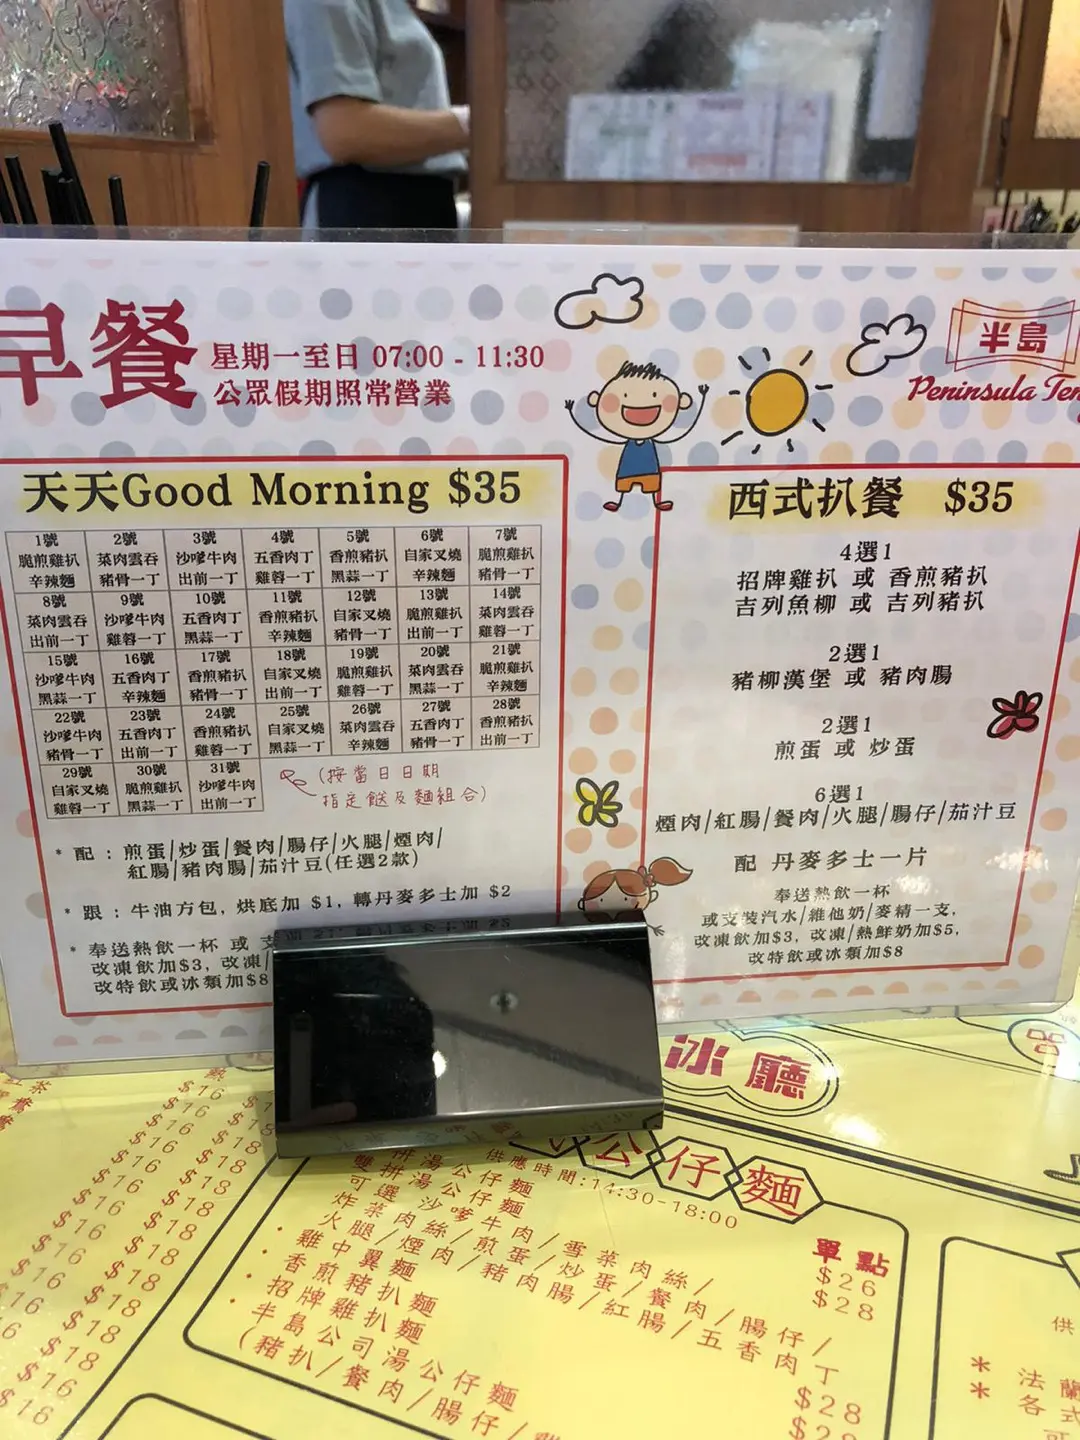 早餐
星期一至日 07:00 - 11:30
公眾假期照常營業
半島
Peninsula
天天Good Morning $35
1號 2號 3號 4號 5號 6號 7號
脆煎雞扒 菜肉雲吞 沙嗲牛肉 五香肉丁 香煎豬扒 自家叉燒 脆煎雞扒
辛辣麵 豬骨一丁 出前一丁 雞蓉一丁 黑蒜一丁 辛辣麵 豬骨一丁
8號 9號 10號 11號 12號 13號 14號
菜肉雲吞 沙嗲牛肉 五香肉丁 香煎豬扒 自家叉燒 脆煎雞扒 菜肉雲吞
出前一丁 雞蓉一丁 黑蒜一丁 辛辣麵 豬骨一丁 出前一丁 雞蓉一丁
15號 16號 17號 18號 19號 20號 21號
沙嗲牛肉 五香肉丁 香煎豬扒 自家叉燒 脆煎雞扒 菜肉雲吞 脆煎雞扒
黑蒜一丁 辛辣麵 豬骨一丁 出前一丁 雞蓉一丁 黑蒜一丁 辛辣麵
22號 23號 24號 25號 26號 27號 28號
沙嗲牛肉 五香肉丁 香煎豬扒 自家叉燒 菜肉雲吞 五香肉丁 香煎豬扒
豬骨一丁 出前一丁 雞蓉一丁 黑蒜一丁 辛辣麵 豬骨一丁 出前一丁
29號 30號 31號
自家叉燒 脆煎雞扒 沙嗲牛肉
雞蓉一丁 黑蒜一丁 出前一丁
(按當日日期
指定餸及麵組合)
* 配 : 煎蛋/炒蛋/餐肉/腸仔/火腿/煙肉/
紅腸/豬肉腸/茄汁豆(任選2款)
* 跟 : 牛油方包, 烘底加 $1, 轉丹麥多士加 $2
* 奉送熱飲一杯 或
改凍飲加$3, 改凍/
改特飲或冰類加$8
西式扒餐 $35
4選1
招牌雞扒 或 香煎豬扒
吉列魚柳 或 吉列豬扒
2選1
豬柳漢堡 或 豬肉腸
2選1
煎蛋 或 炒蛋
6選1
煙肉/紅腸/餐肉/火腿/腸仔/茄汁豆
配 丹麥多士一片
奉送熱飲一杯
或支裝汽水/維他奶/麥精一支,
改凍飲加$3, 改凍/熱鮮奶加$5,
改特飲或冰類加$8
冰廳
品
公仔麵
供應時間:14:30-18:00
單點
拼湯公仔麵 $26
雙拼湯公仔麵 $28
可選 沙嗲牛肉/雪菜肉絲/
炸菜肉絲/煎蛋/炒蛋/餐肉/腸仔/
火腿/煙肉/豬肉腸/紅腸/五香肉丁
· 雞中翼麵 $28
· 香煎豬扒麵
· 招牌雞扒麵
· 半島公司湯公仔麵
(豬扒/餐肉/腸仔/
熱
$16 $18
$16 $18
$16 $18
$16 $18
$16 $18
$16 $18
$16 $18
$16
$16
供
* 法蘭
* 各式
可